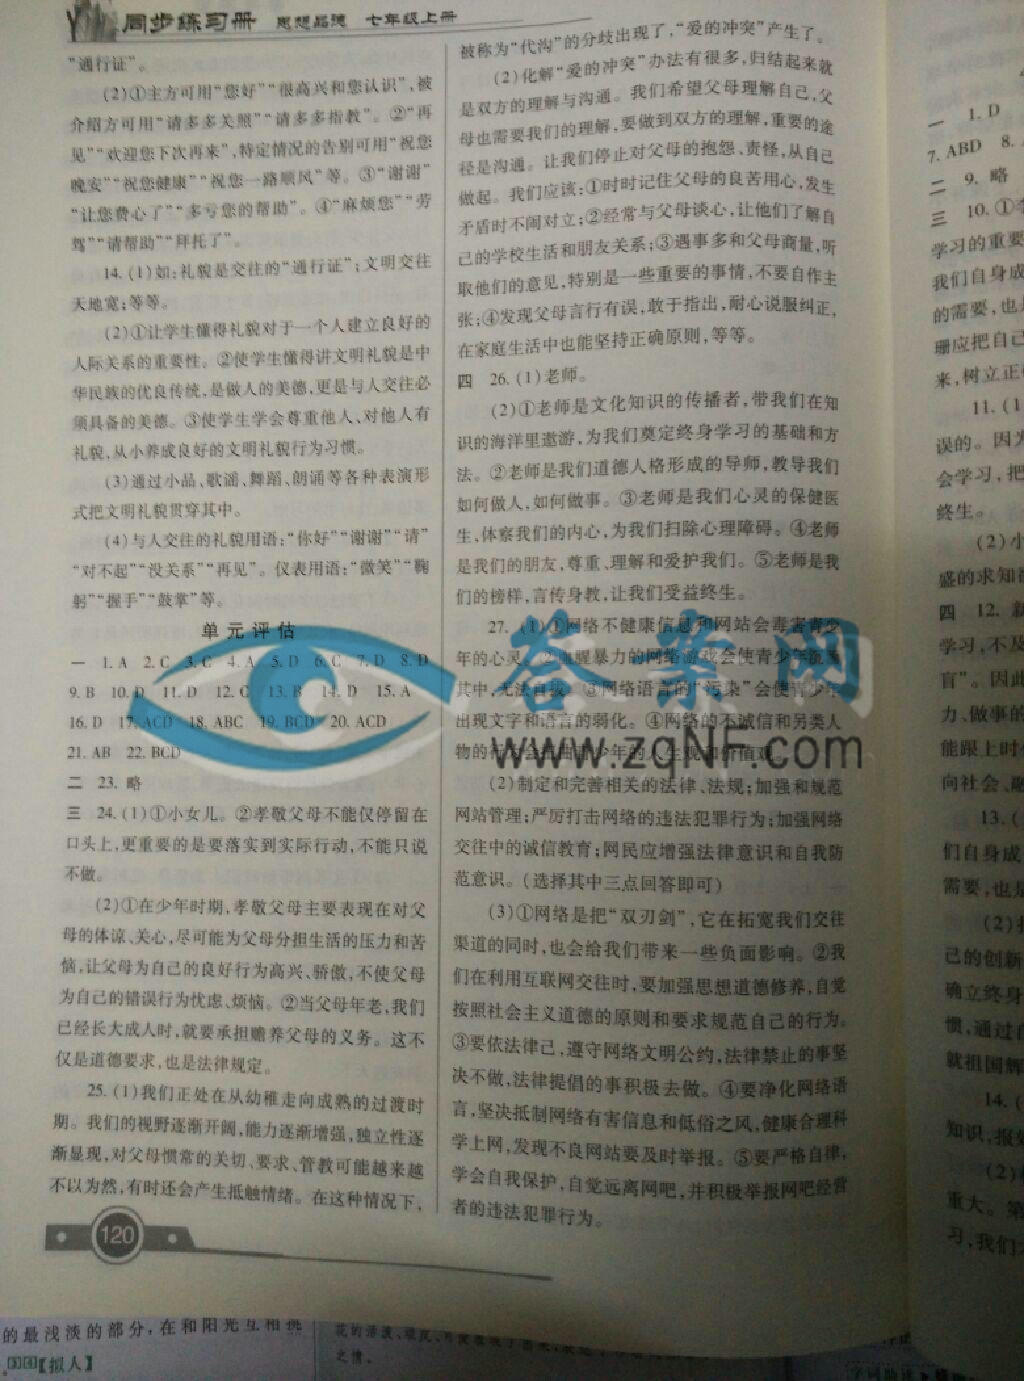 同步练习册 思想品德 七年级上册
“通行证”。
(2)①主方可用“您好”“很高兴和您认识”,被
介绍方可用“请多多关照”“请多多指教”。②“再
见”“欢迎您下次再来”,特定情况的告别可用“祝您
晚安”“祝您健康”“祝您一路顺风”等。③“谢谢”
“让您费心了”“多亏您的帮助”。④“麻烦您”“劳
驾”“请帮助”“拜托了”。
14.(1)如:礼貌是交往的“通行证”;文明交往
天地宽;等等。
(2)①让学生懂得礼貌对于一个人建立良好的
人际关系的重要性。②使学生懂得讲文明礼貌是中
华民族的优良传统,是做人的美德,更是与人交往必
须具备的美德。③使学生学会尊重他人、对他人有
礼貌,从小养成良好的文明礼貌行为习惯。
(3)通过小品、歌谣、舞蹈、朗诵等各种表演形
式把文明礼貌贯穿其中。
(4)与人交往的礼貌用语:“你好”“谢谢”“请”
“对不起”“没关系”“再见”。仪表用语:“微笑”“鞠
躬”“握手”“鼓掌”等。
单元评估
一 1.A 2.C 3.C 4.A 5.D 6.C 7.D 8.D
9.B 10.D 11.D 12.C 13.B 14.D 15.A
16.D 17.ACD 18.ABC 19.BCD 20.ACD
21.AB 22.BCD
二 23.略
三 24.(1)①小女儿。②孝敬父母不能仅停留在
口头上,更重要的是要落实到实际行动,不能只说
不做。
(2)①在少年时期,孝敬父母主要表现在对父
母的体谅、关心,尽可能为父母分担生活的压力和苦
恼,让父母为自己的良好行为高兴、骄傲,不使父母
为自己的错误行为忧虑、烦恼。②当父母年老,我们
已经长大成人时,就要承担赡养父母的义务。这不
仅是道德要求,也是法律规定。
25.(1)我们正处在从幼稚走向成熟的过渡时
期。我们的视野逐渐开阔,能力逐渐增强,独立性逐
渐显现,对父母惯常的关切、要求、管教可能越来越
不以为然,有时还会产生抵触情绪。在这种情况下,
120
被称为“代沟”的分歧出现了,“爱的冲突”产生了。
(2)化解“爱的冲突”办法有很多,归结起来就
是双方的理解与沟通。我们希望父母理解自己,父
母也需要我们的理解,要做到双方的理解,重要的途
径是沟通。让我们停止对父母的抱怨、责怪,从自己
做起。我们应该:①时时记住父母的良苦用心,发生
矛盾时不闹对立;②经常与父母谈心,让他们了解自
己的学校生活和朋友关系;③遇事多和父母商量,听
取他们的意见,特别是一些重要的事情,不要自作主
张;④发现父母言行有误,敢于指出,耐心说服纠正,
在家庭生活中也能坚持正确原则,等等。
四 26.(1)老师。
(2)①老师是文化知识的传播者,带我们在知
识的海洋里遨游,为我们奠定终身学习的基础和方
法。②老师是我们道德人格形成的导师,教导我们
如何做人,如何做事。③老师是我们心灵的保健医
生,体察我们的内心,为我们扫除心理障碍。④老师
是我们的朋友,尊重、理解和爱护我们。⑤老师是我
们的榜样,言传身教,让我们受益终生。
27.(1)①网络不健康信息和网站会毒害青少
年的心灵。②血腥暴力的网络游戏会使青少年沉迷
其中,无法自拔。③网络语言的“污染”会使青少年
出现文字和语言的弱化。④网络的不诚信和另类人
物的行为会扭曲青少年的人生观和价值观。
(2)制定和完善相关的法律、法规;加强和规范
网站管理;严厉打击网络的违法犯罪行为;加强网络
交往中的诚信教育;网民应增强法律意识和自我防
范意识。(选择其中三点回答即可)
(3)①网络是把“双刃剑”,它在拓宽我们交往
渠道的同时,也会给我们带来一些负面影响。②我
们在利用互联网交往时,要加强思想道德修养,自觉
按照社会主义道德的原则和要求规范自己的行为。
③要依法律己,遵守网络文明公约,法律禁止的事坚
决不做,法律提倡的事积极去做。④要净化网络语
言,坚决抵制网络有害信息和低俗之风,健康合理科
学上网,发现不良网站要及时举报。⑤要严格自律,
学会自我保护,自觉远离网吧,并积极举报网吧经营
者的违法犯罪行为。
答案网
www.zqNF.com
一 1.D
7.ABD 8.
二 9.略
三 10.①
学习的重要
我们自身成
的需要,也是
珊应把自己
来,树立正确
11.(1
误的。因为
会学习,把
终生。
(2)小
盛的求知
四 12.
学习,不及
盲”。因此
力、做事的
能跟上时
向社会、融
13.(
们自身成
需要,也是
(2)
己的创新
确立终身
惯,通过
就祖国
14.(
知识,报
(2)
重大。第
习,我们
的最浅淡的部分,在和阳光互相挑
【拟人】
之情。